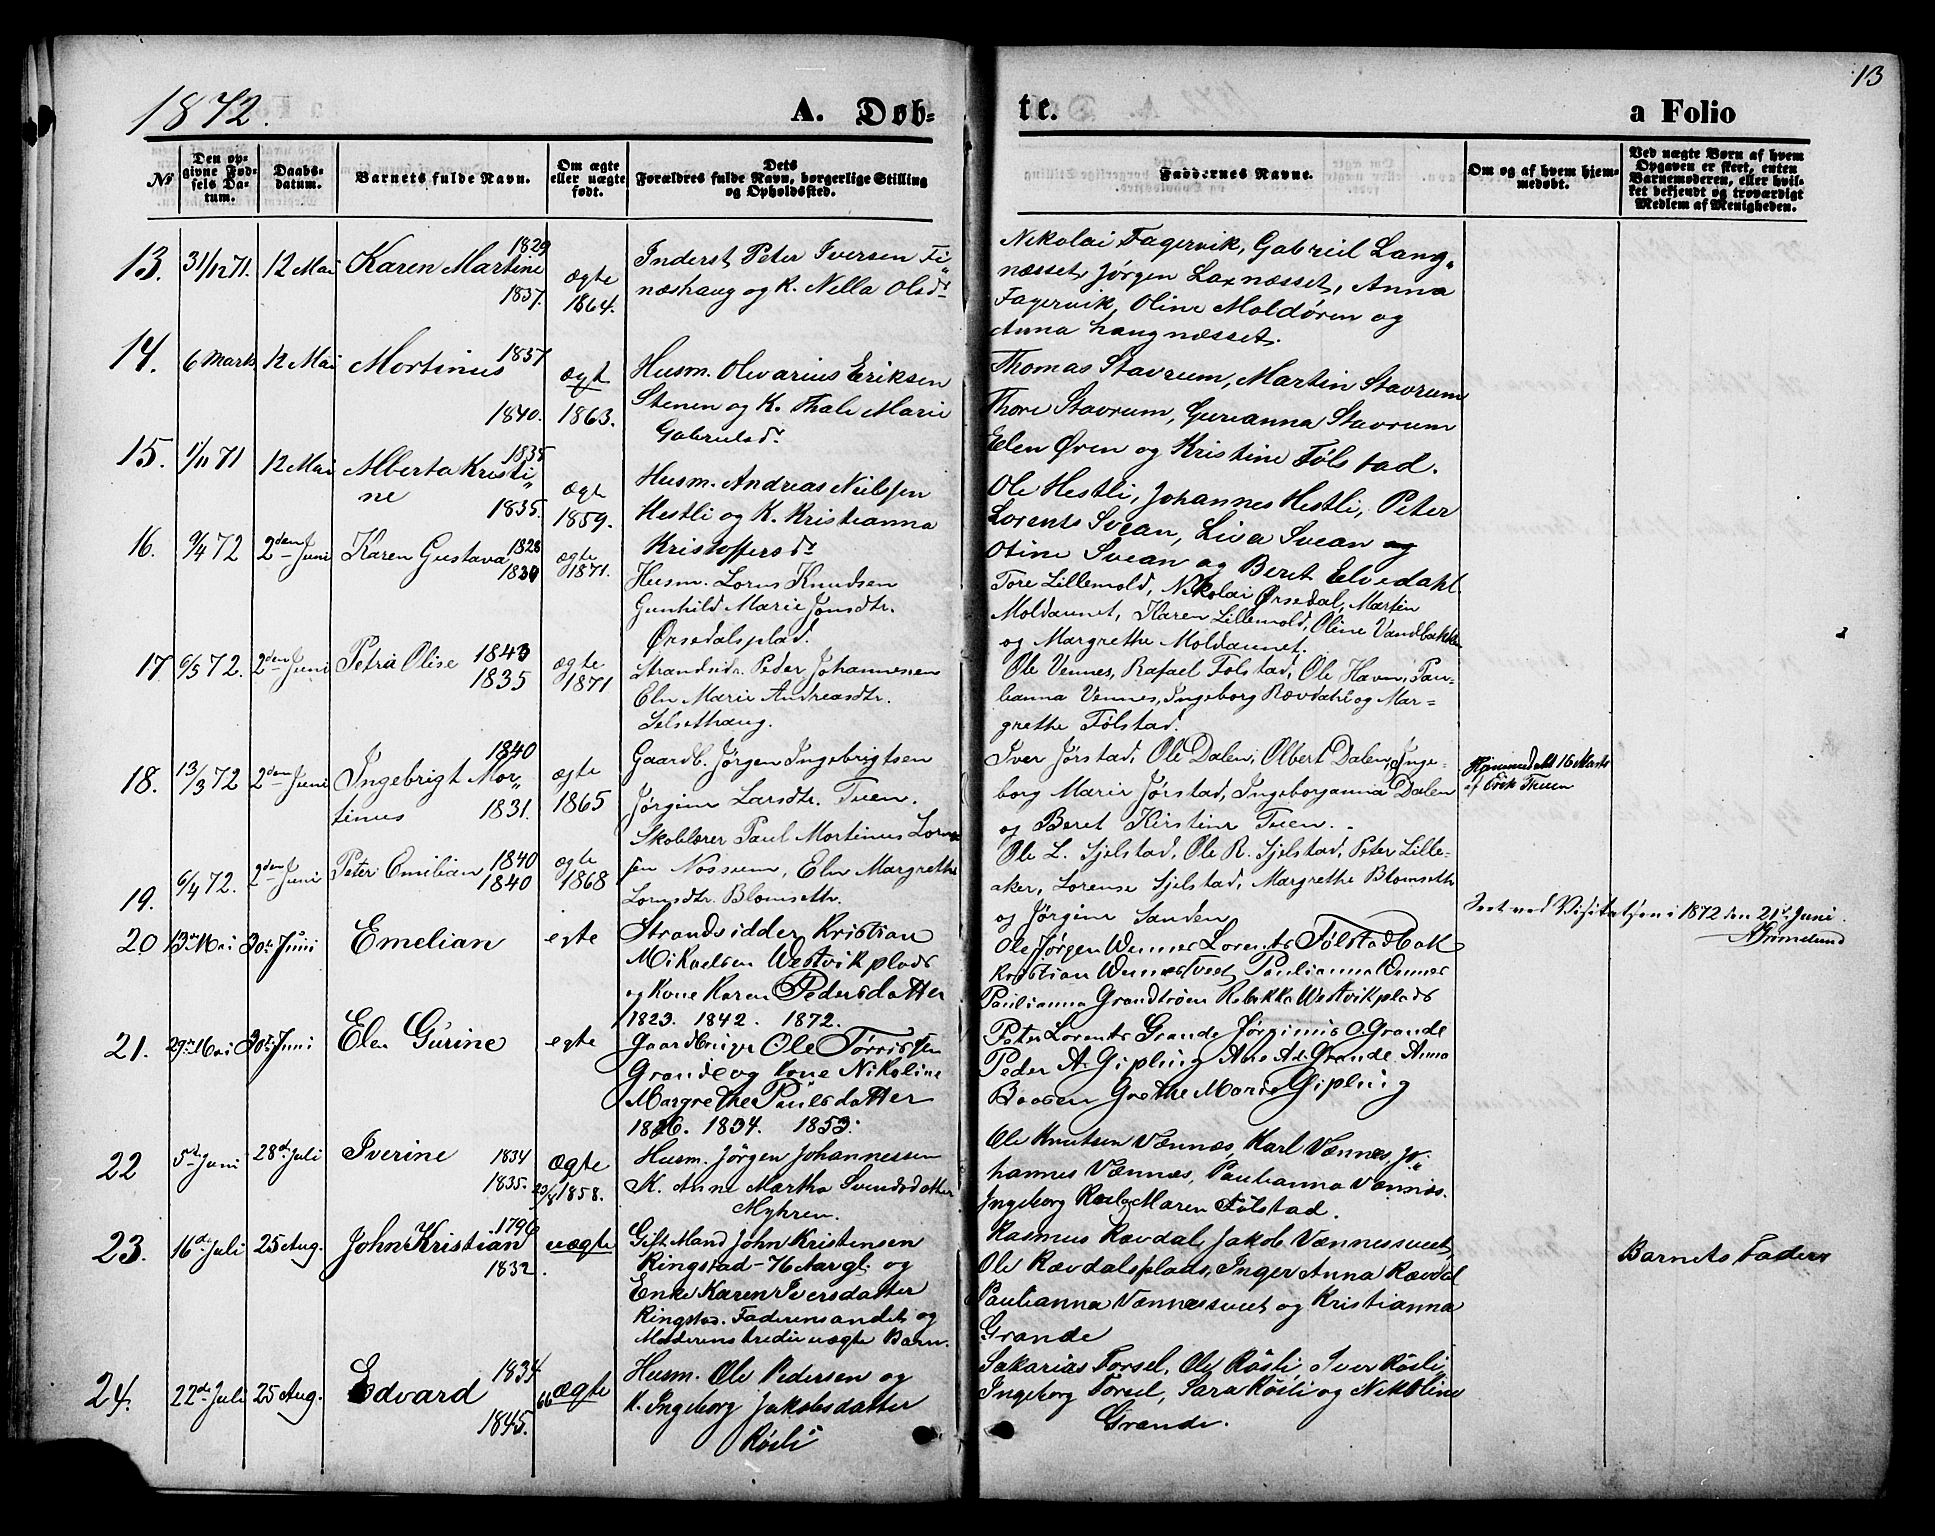 1872.
A. Døb-
te.
a Folio
13
No
Den op-
givne Fød-
sels Da-
tum.
Daabs-
datum.
Barnets fulde Navn.
Om ægte
eller uægte
født.
Dets
Forældres fulde Navn, borgerlige Stilling
og Opholdssted.
Faddernes Navne.
Om og af hvem hjem-
medøbt.
Ved uægte Børn af hvem
Opgaven er skeet, enten
Barnemoderen, eller hvil-
ket bekjendt og troværdigt
Medlem af Menigheden.
13. 31/12 71. 12 Mai Karen Martine 1829 1837. ægte 1864.
Inderst Peter Iversen Fi-
næshaug og K. Nella Olsdr
Nikolai Fagervik, Gabriel Lang-
næsset, Jørgen Laxnæsset, Anna
Fagervik, Oline Moldøren og
Anna Langnæsset.
14. 6 Marts 12 Mai Mortinus 1837 1840. ægt 1863.
Husm. Olevarius Eriksen
Stenen og K. Thale Marie
Gabrielsdr.
Thomas Stavrum, Martin Stavrum
Thore Stavrum, Gurianna Stavrum
Elen Øren og Kristine Følstad.
15. 1/11 71 12 Mai Alberta Kristi-
ne 1835 1835. ægte 1859.
Husm. Andreas Nielsen
Hestli og K. Kristianna
Kristoffersdr
Ole Hestli, Johannes Hestli, Peter
Lorents Svean, Liva Svean og
Otine Svean og Beret Elvedahl
16. 9/4 72 2den Juni Karen Gustava 1828 1830 ægte 1871.
Husm. Lorns Knudsen
Gunhild Marie Jonsdtr.
Ørsedalsplad.
Tore Lillemold, Nikolai Ørsedal, Martin
Moldaunet, Karen Lillemold, Oline Vandbakken
og Margrethe Moldaunet.
17 6/5 72. 2den Juni Petra Olise 1843 1835 ægte 1871
Strandsidr. Peder Johannesen
Eln Marie Andreasdtr.
Selsethaug.
Ole Vennes, Rafael Følstad, Ole Havn, Pau-
lianna Vennes, Ingeborg Rævdahl og Mar-
grethe Følstad.
18. 13/3 72 2den Juni Ingebrigt Mor-
tinus 1840 1831. ægte 1865
Gaardb. Jørgen Ingebrigtsen
Jørgine Larsdtr. Tuen.
Iver Jørstad, Ole Dalen, Olbert Dalen, Inge-
borg Marie Jørstad, Ingeborganna Dalen
og Beret Kirstine Tuen.
Hjemmedøbt 16 Marts
af Erik Thuen
19. 6/4 72. 2den Juni Peter Emilian 1840 1840 ægte 1868
Skolelærer Paul Mortinus Lorn-
sen Nossum, Eln Margrethe
Lornsdtr. Blomseth.
Ole L. Sjelstad, Ole R. Sjelstad, Peter Lille-
aker, Lorense Sjelstad, Margrethe Blomseth
og Jørgine Sanden
Seet ved Visitatsen i 1872 den 21de Juni.
20 13de Mai 30te Juni Emelian egte
Strandsidder Kristian
Mikaelsen Westvikplads
og Kone Karen Pedersdatter
1823. 1842. 1872.
Ole Jørgen Wennes Lorents Følstadbak
Kristian Wennestveet Paulianna Wennes
Paulianna Grandtrøen Rebekka Westvikplads
21. 29de Mai 30te Juni Elen Gurine egte
Gaardbruger Ole Torrissen
Grande og Kone Nikoline
Margrethe Paulsdatter
1826. 1834. 1853.
Peter Lorents Grande Jørginus O. Grande
Peder A. Gipling Ane Ad. Grande Anna
Baasen Grethe Marie Gipling
22 5te Juni 28de Juli Iverine 1834 1835. Ægte 23/8 1858.
Husm. Jørgen Johannessen
K. Anne Martha Svendsdatter
Myhren.
Ole Knutsen Vænnæs, Karl Vænnes, Jo-
hannes Vænnæs, Paulianna Vænnæs.
Ingeborg Maren Følstad.
23. 16de Juli 25 Aug. John Kristian 1796 1832. uægte
Gift Mand John Kristensen
Ringstad - 76 Aar gl. og
Enke Karen Iversdatter
Ringstad. Faderens andet og
Moderens tredie uægte Barn.
Rasmus Rævdal, Jakob Vænnessveet,
Ole Rævdalsplads, Inger Anna Rævdal
Paulianna Vænnessveet og Kristianna
Grande
Barnets Fader
24. 22de Juli 25 Aug. Edvard 1834 1845. 66 ægte
Husm. Ole Pedersen og
K. Ingeborg Jakobsdatter
Røsli
Sakarias Forsel, Ole Røsli, Iver Røsli,
Ingeborg Forsel, Sara Røsli og Nikoline
Grande.